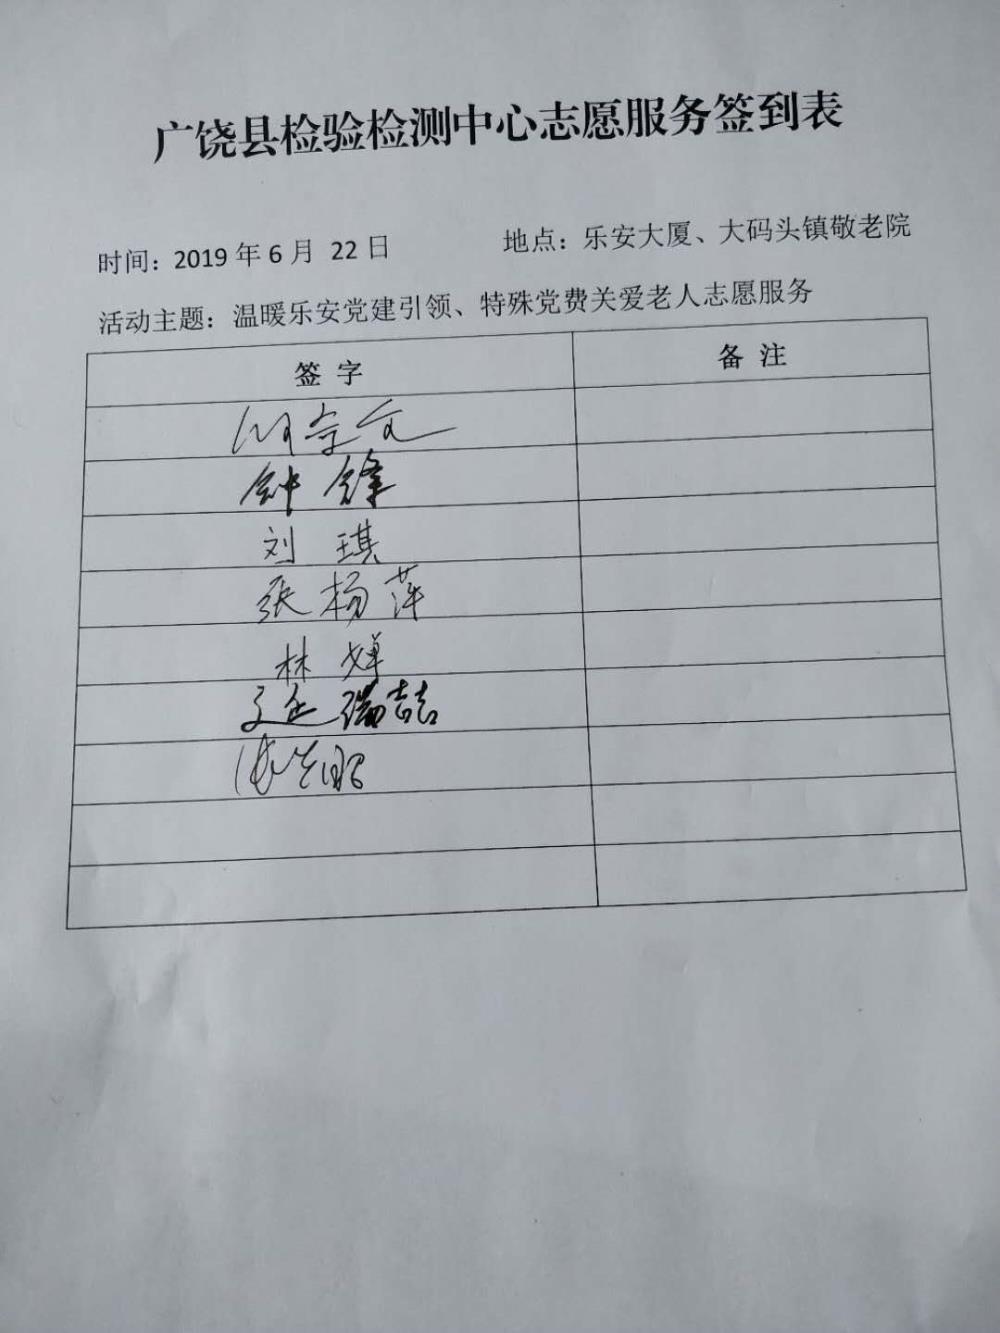 广饶县检验检测中心志愿服务签到表
时间：2019 年 6 月 22 日 地点：乐安大厦、大码头镇敬老院
活动主题：温暖乐安党建引领、特殊党费关爱老人志愿服务
签 字 备 注
钟 锋
刘 琪
张杨萍
林 婵